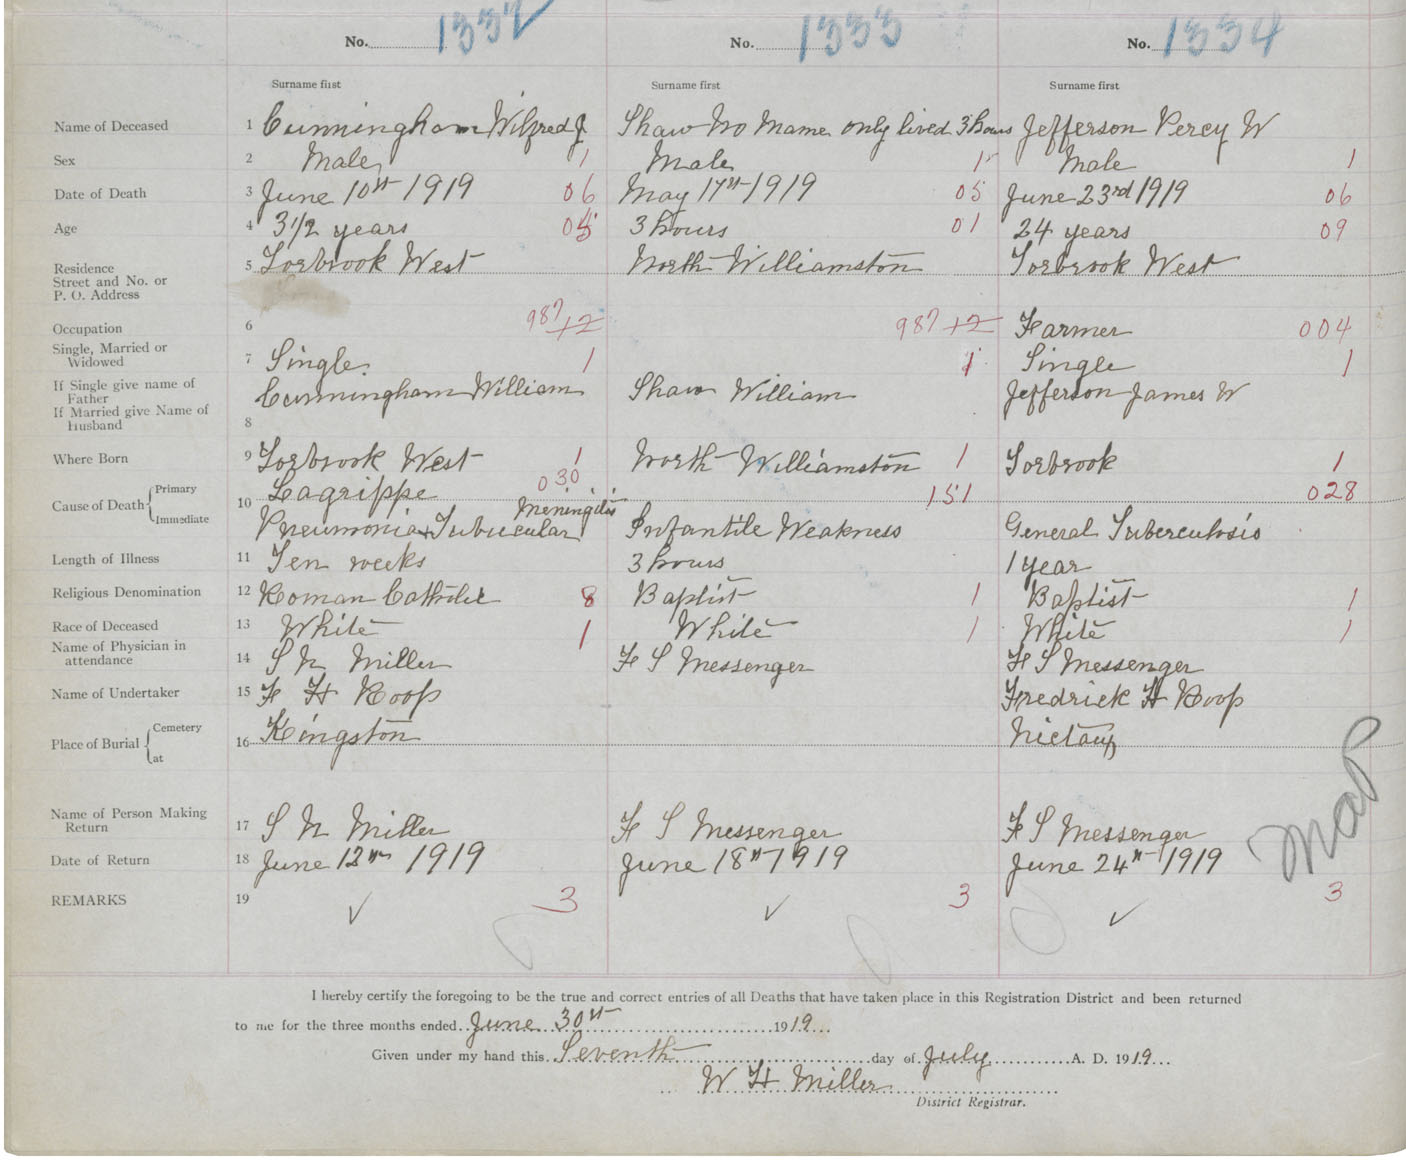 No. 1332 No. 1333 No. 1334
Surname first Surname first Surname first
Name of Deceased 1 Cunningham Wilfred J. Shaw No Name only lived 3 hours Jefferson Percy W
Sex 2 Male 1 Male 1 Male 1
Date of Death 3 June 10th 1919 06 May 17th 1919 05 June 23rd 1919 06
Age 4 3 1/2 years 3 hours 01 24 years 09
Residence 5 Torbrook West North Williamston Torbrook West
Street and No. or
P. O. Address
Occupation 6 987 12 987 12 Farmer 004
Single, Married or
Widowed 7 Single 1 1 Single 1
If Single give name of
Father Cunningham William Shaw William Jefferson James W
If Married give Name of
Husband 8
Where Born 9 Torbrook West 1 North Williamston 1 Torbrook 1
Cause of Death Primary 10 Lagrippe 030 151 028
Meningitis
Immediate Pneumonia & Tubucular Infantile Weakness General Tuberculosis
Length of Illness 11 Ten weeks 3 hours 1 year
Religious Denomination 12 Roman Catholic 8 Baptist 1 Baptist 1
Race of Deceased 13 White 1 White 1 White 1
Name of Physician in
attendance 14 S N Miller F S Messenger F S Messenger
Name of Undertaker 15 F H Roop Fredrick H Roop
Place of Burial Cemetery 16 Kingston Nictaux
at
Name of Person Making
Return 17 S N Miller F S Messenger F S Messenger
Date of Return 18 June 12th 1919 June 18th 1919 June 24th 1919
REMARKS 19 ✓ 3 ✓ 3 ✓ 3
I hereby certify the foregoing to be the true and correct entries of all Deaths that have taken place in this Registration District and been returned
to me for the three months ended June 30th 1919
Given under my hand this Seventh day of July A. D. 1919
W H Miller
District Registrar.